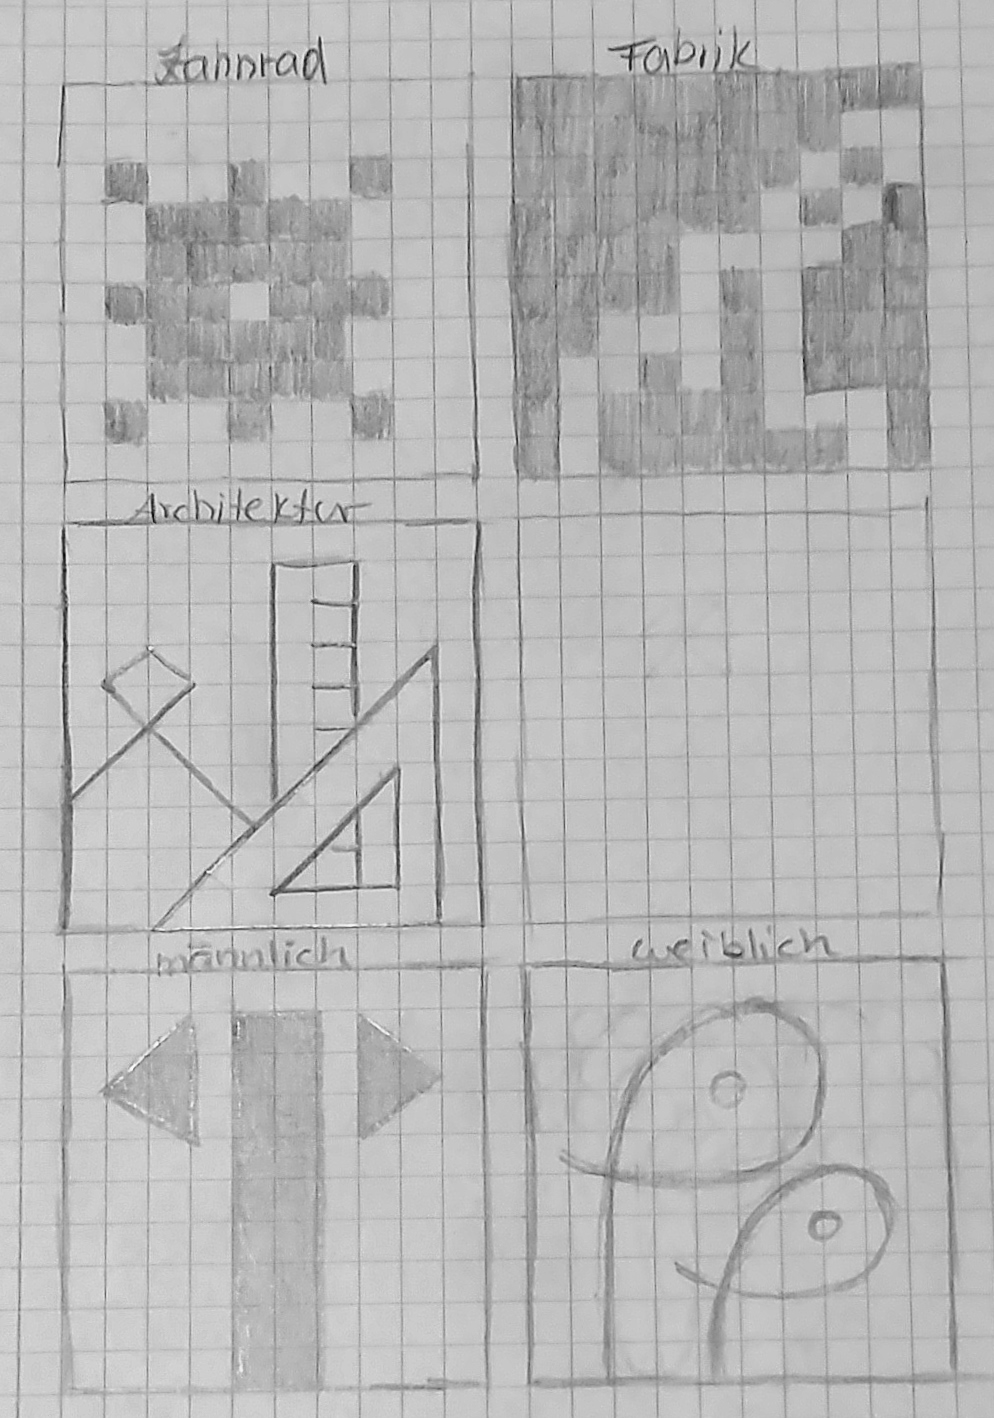 Zahnrad
Fabrik
Architektur
männlich
weiblich